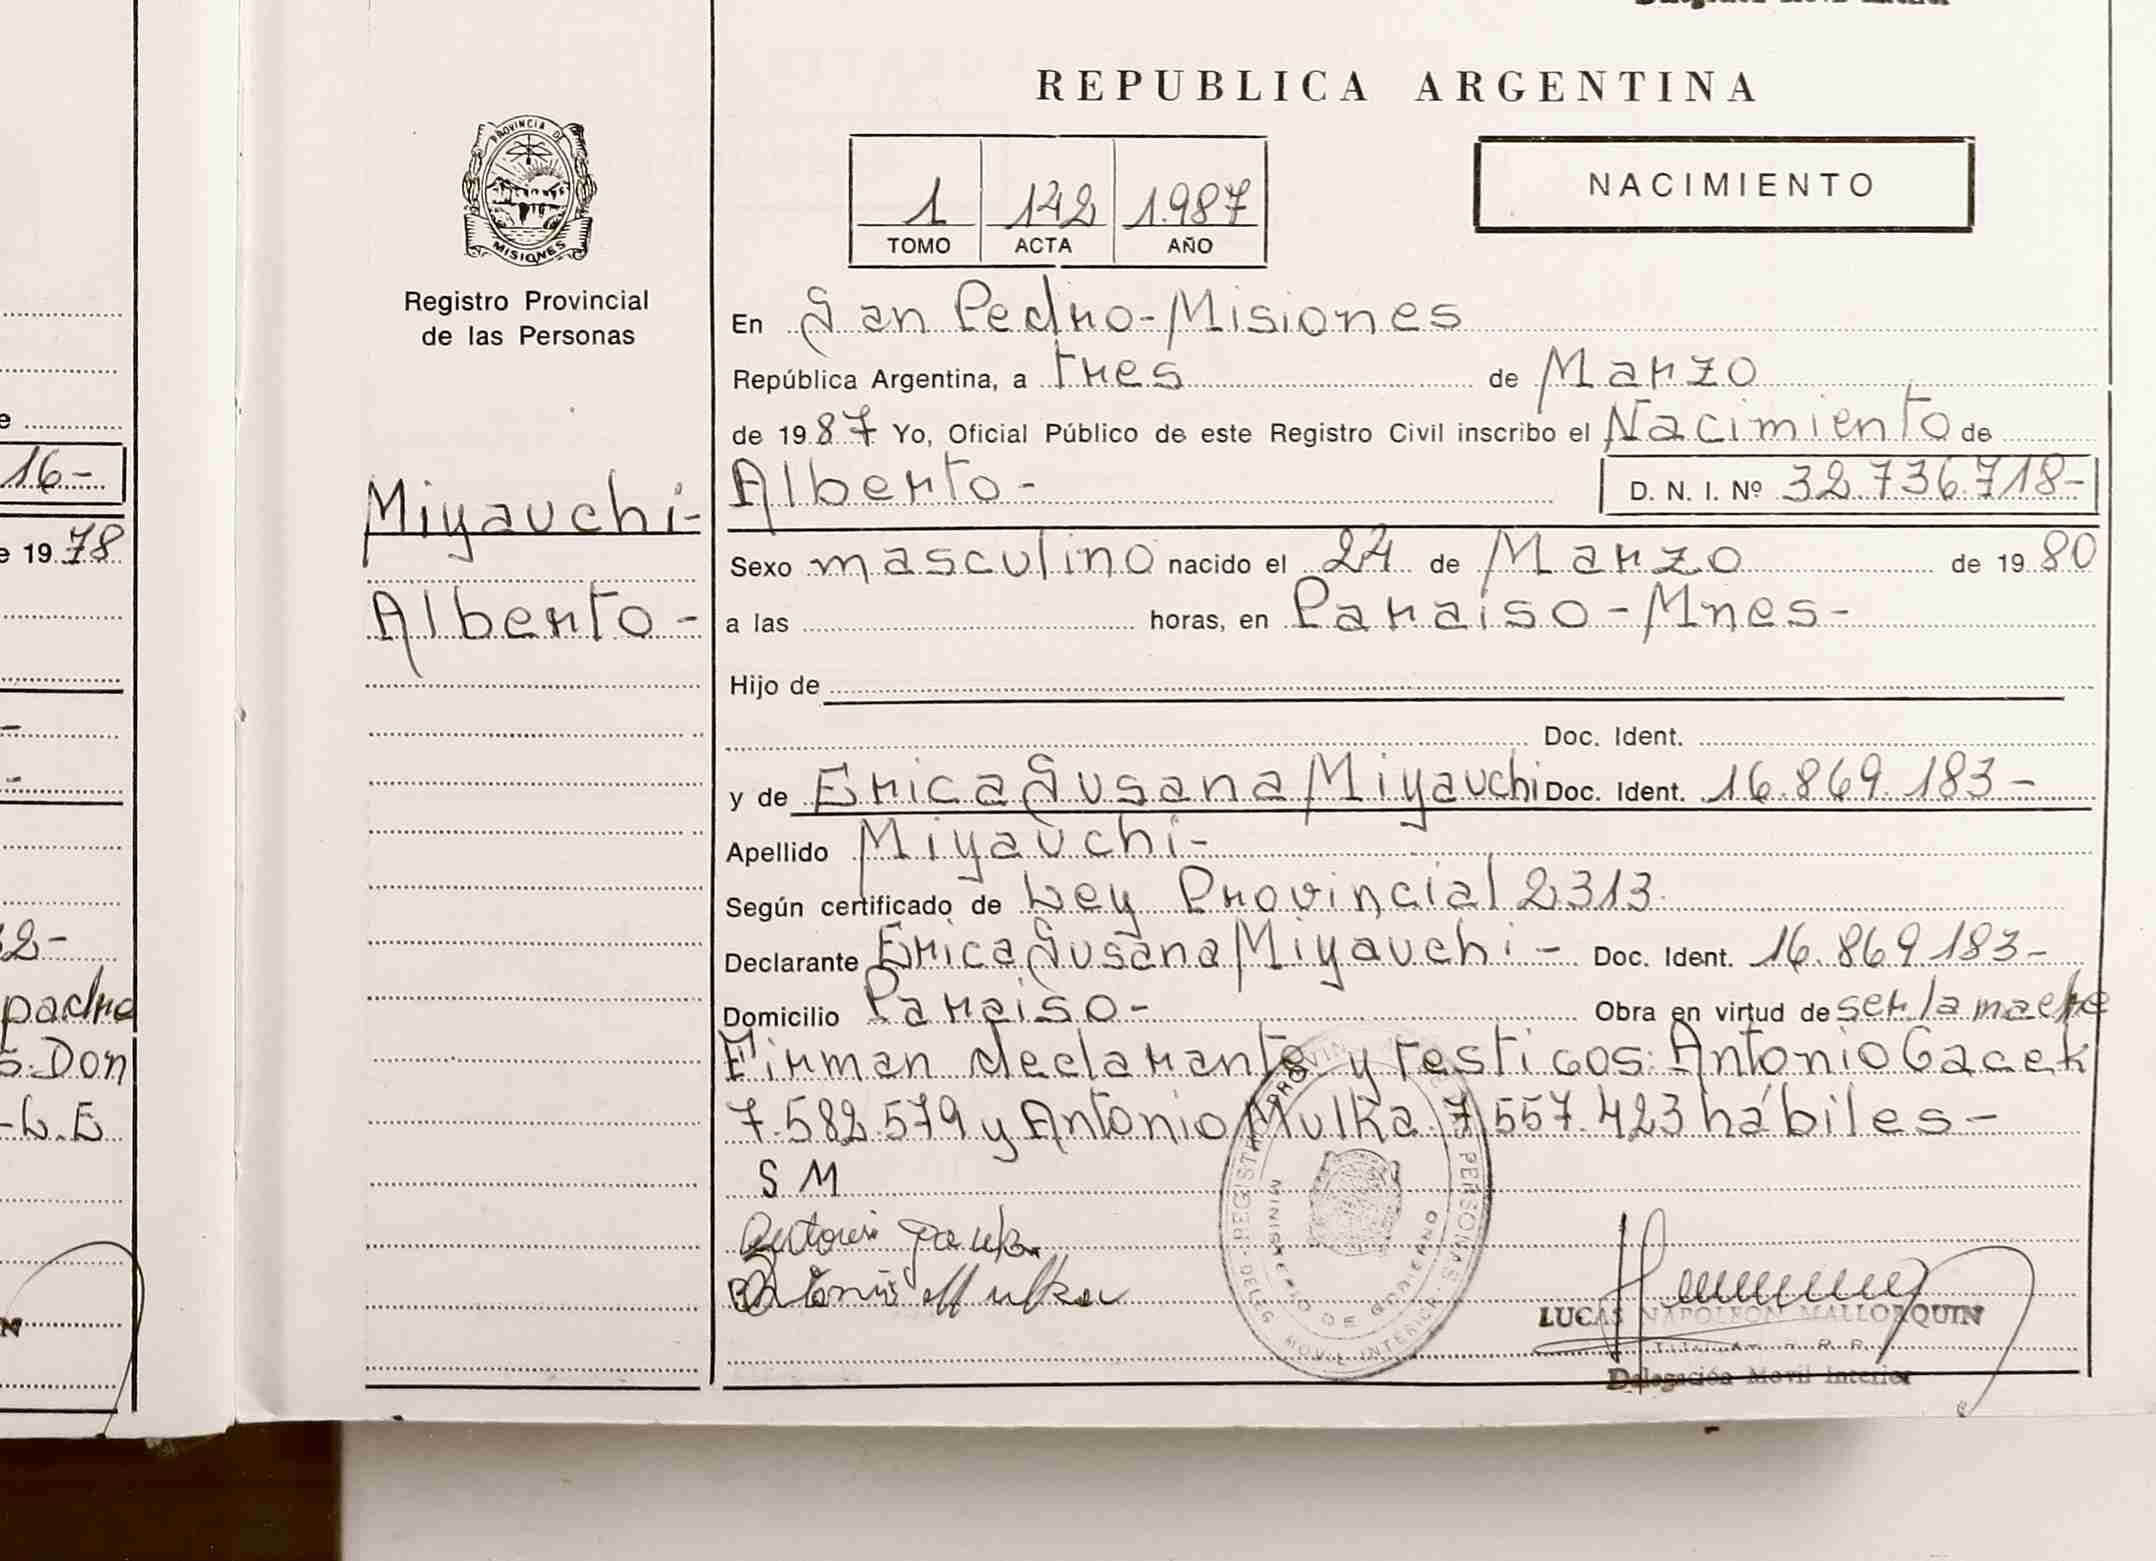 REPUBLICA ARGENTINA
PROVINCIA DE
MISIONES
Registro Provincial
de las Personas
1 142 1.987
TOMO ACTA AÑO
NACIMIENTO
En San Pedro-Misiones
República Argentina, a tres de Marzo
de 1987 Yo, Oficial Público de este Registro Civil inscribo el Nacimiento de
Miyauchi-
Alberto-
Alberto- D. N. I. Nº 32.736.718-
Sexo masculino nacido el 24 de Marzo de 1980
a las horas, en Paraiso-Mnes-
Hijo de
Doc. Ident.
y de Erica Susana Miyauchi Doc. Ident. 16.869.183-
Apellido Miyauchi-
Según certificado de Ley Provincial 2313.
Declarante Erica Susana Miyauchi- Doc. Ident. 16.869.183-
Domicilio Paraiso- Obra en virtud de ser la madre
Firman declarante y testigos: Antonio Gacek
7.582.579 y Antonio Mulka. 7.557.423 hábiles-
S M
Antonio Mulka
LUCAS NAPOLEON MALLORQUIN
Delegación Movil Interior
16-
e 19 78
2-
padre
s. Don
-L.E